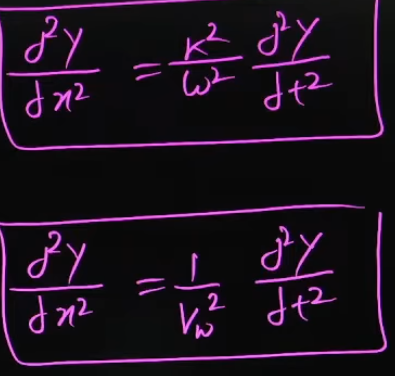 d²y/dx² = K²/ω² d²y/dt²
d²y/dx² = 1/Vw² d²y/dt²